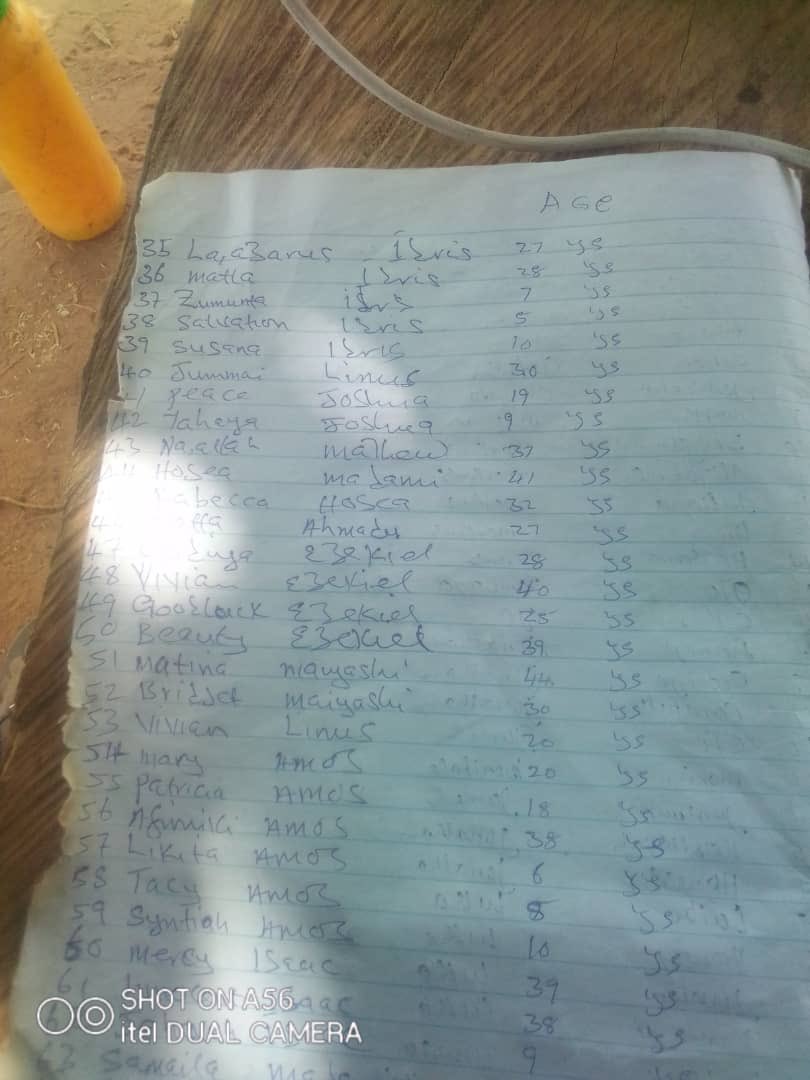 AGE
35 La,azarus Ibris 27 ys
36 matta Ibris 28 ys
37 Zumunta ibrs 7 ys
38 Salvation Ibris 5 ys
39 Susana Ibris 10 ys
40 Jummai Linus 30 ys
Peace Joshua 19 ys
42 Jahaya Joshua 9 ys
43 Na,allah mathew 37 ys
Hosea madami 41 ys
Rabecca Hosea 32 ys
Ahmadu 27 ys
47 Ezekiel 28 ys
48 Vivian Ezekiel 40 ys
49 Goodluck Ezekiel 25 ys
50 Beauty Ezekiel 39 ys
51 Matina maiyashi 44 ys
52 Bridset maiyashi 30 ys
53 Vivian Linus 20 ys
54 mary AMOS 20 ys
55 Patricia AMOS 18 ys
56 AMOS 38 ys
57 Likita AMOS 6 ys
58 Tacy AMOS 8 ys
59 Syntiah AMOS 10 ys
60 mercy Iseac 39 ys
61 38 ys
63 Samaila 9
SHOT ON A56
itel DUAL CAMERA